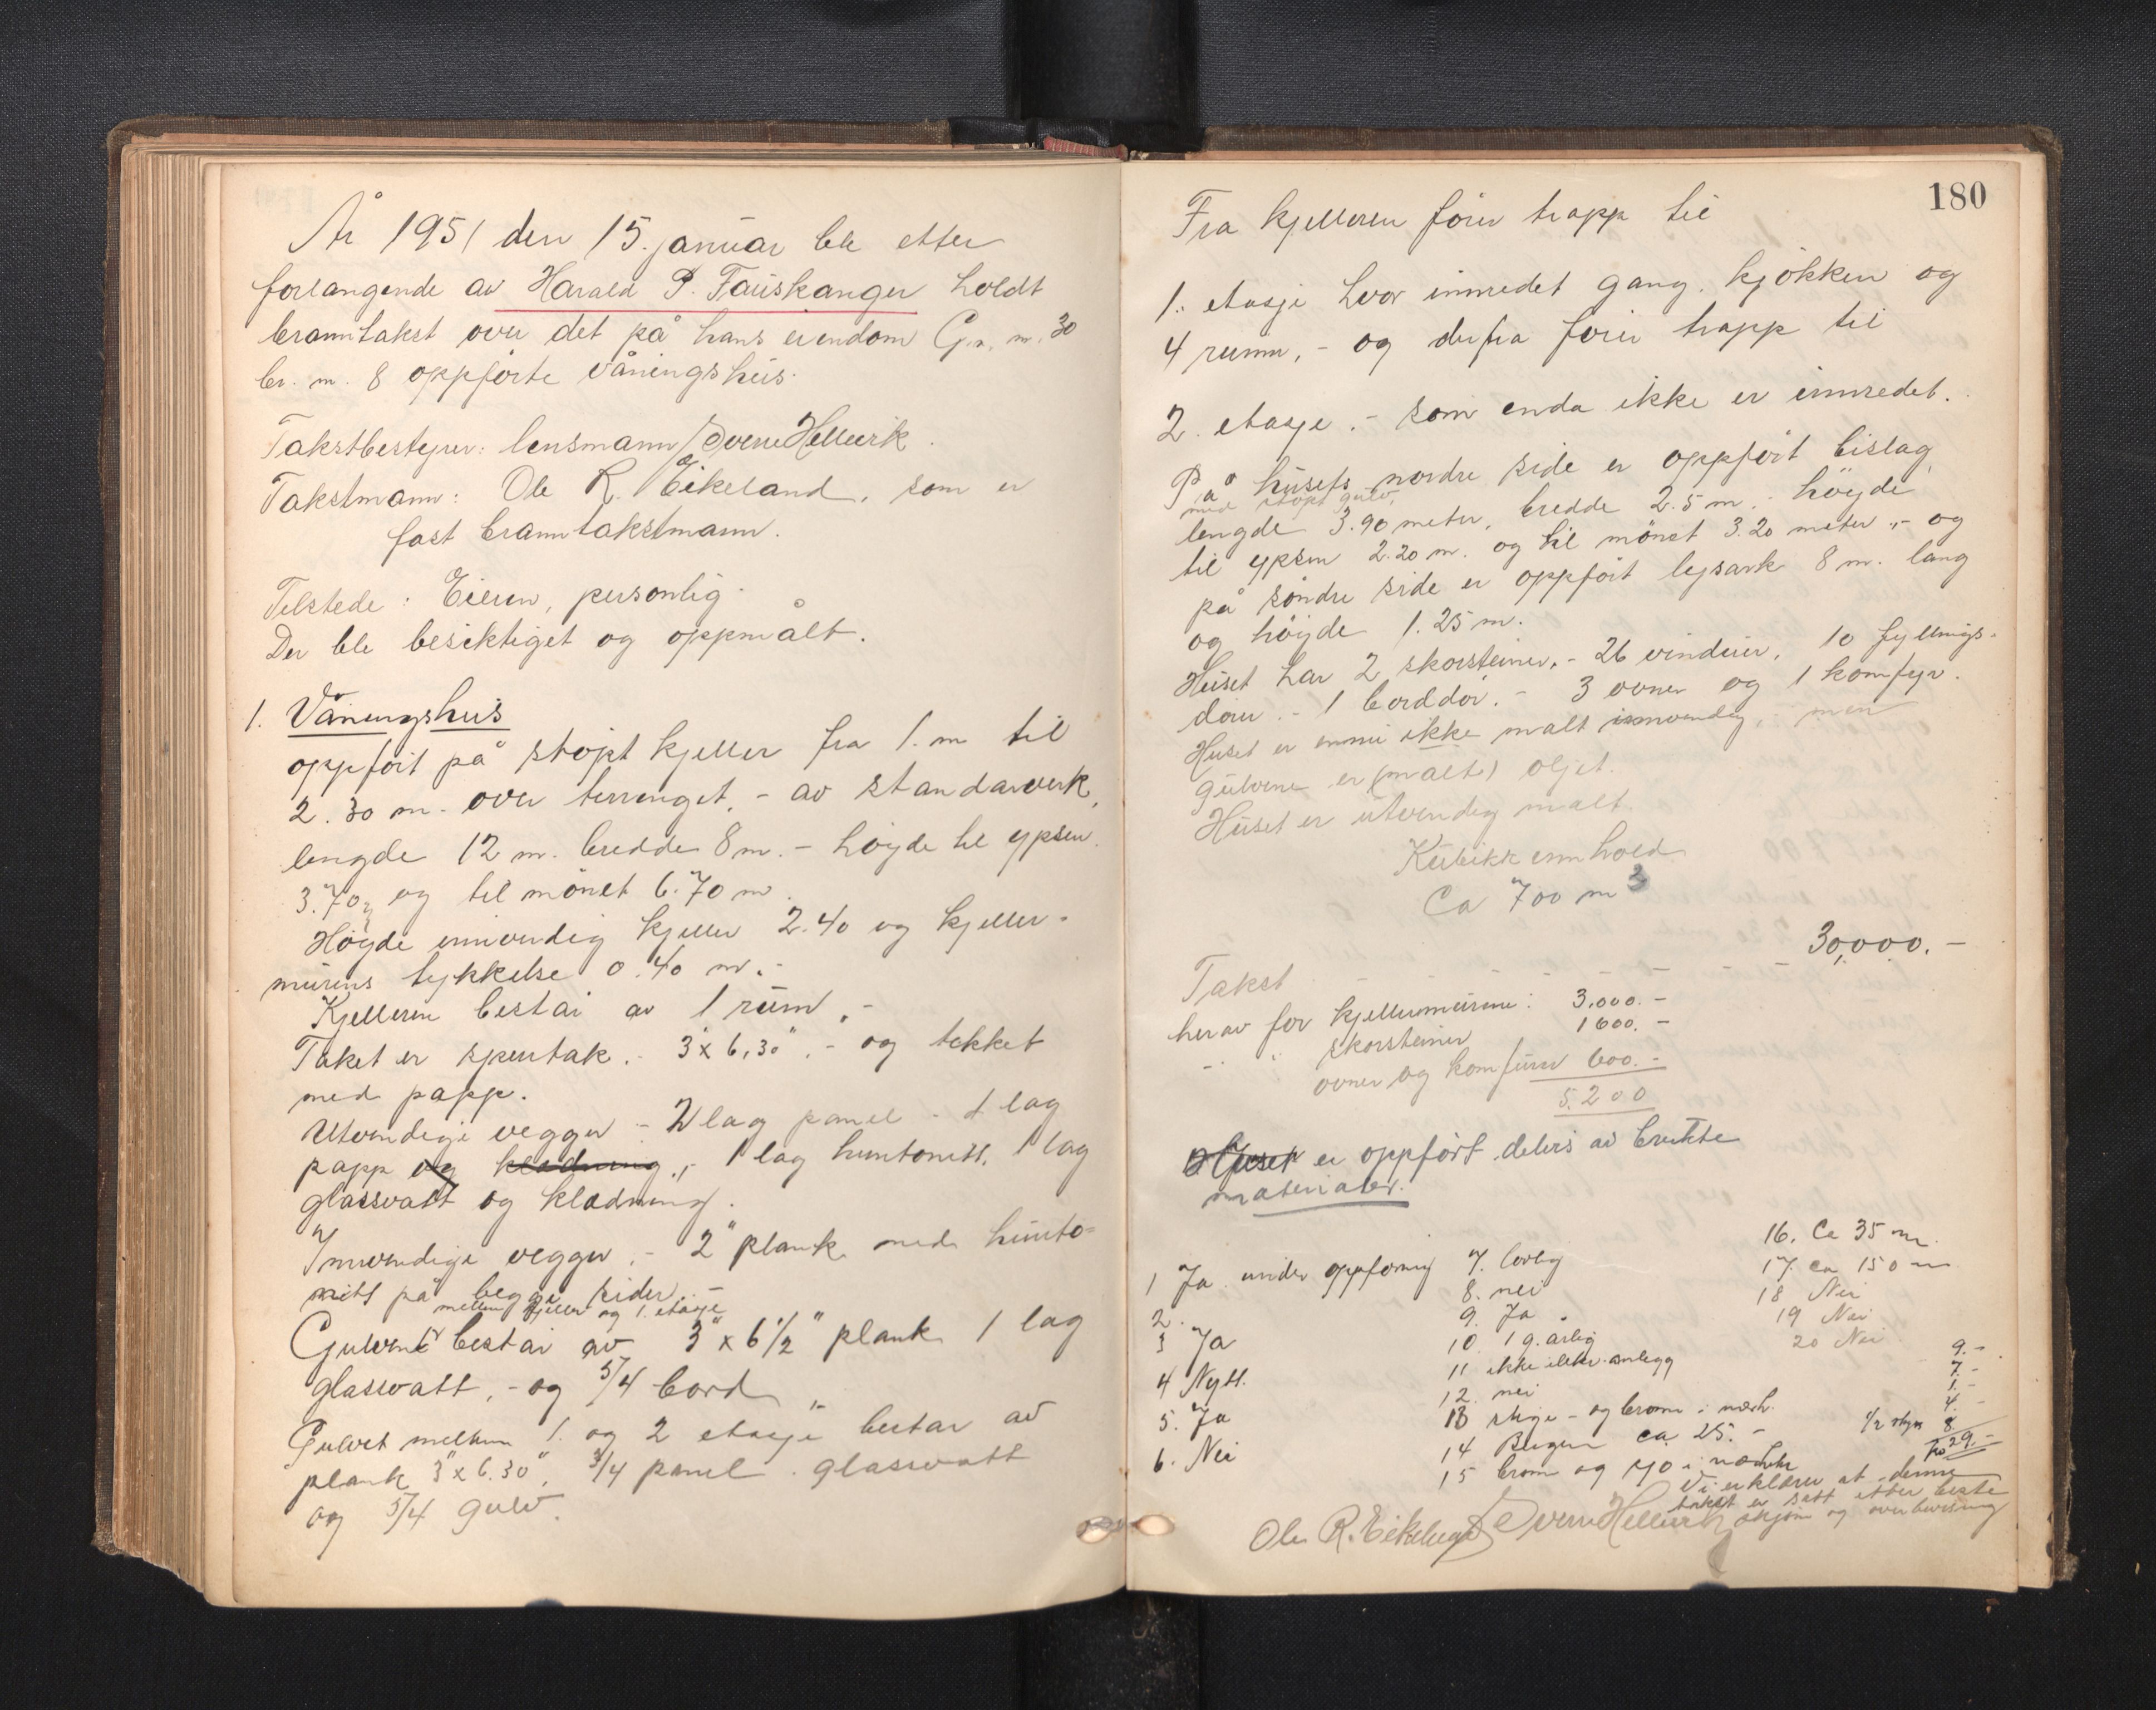 År 1951 den 15. januar ble etter
forlangende av Harald P. Fauskanger holdt
branntakst over det på hans eiendom G.n. nr. 30
br. nr. 8 oppførte våningshus.
Takstbestyrer: lensmann Sverre Hellevik.
Takstmann: Ole R. Eikeland, som er
fast branntakstmann.
Tilstede: Eieren, personlig.
Der ble besiktiget og oppmålt.
1. Våningshus
oppført på støpt kjeller fra 1. m til
2.30 m. over terrenget, - av standarverk,
lengde 12 m. bredde 8 m. - høyde til ypsen
3.70, og til mønet 6.70 m.
Høyde innvendig kjeller 2.40 og kjeller-
murens tykkelse 0.40 m. -
Kjelleren består av 1 rum. -
Taket er sperrtak. - 3 x 6,30". - og tekket
med papp.
Utvendige vegger - 2 lag panel - 1 lag
papp og kledning., 1 lag huntonitt, 1 lag
glassvatt og kledning.
Innvendige vegger. - 2" plank med hunto-
nitt på begge sider. -
mellem kjeller og 1. etasje
Gulvene består av 3" x 6 1/2" plank 1 lag
glassvatt, - og 5/4 bord.
Gulvet mellem 1. og 2 etasje består av
plank 3" x 6.30", 3/4 panel. glassvatt
og 5/4 gulv.
180
Fra kjelleren fører trapp til
1. etasje hvor innredet gang, kjøkken og
4 rumm, - og derfra fører trapp til
2. etasje. - som enda ikke er innredet.
På husets nordre side er oppført bislag,
med støpt gulv,
lengde 3.90 meter, bredde 2.5 m. høyde
til ypsen 2.20 m. og til mønet 3.20 meter, - og
på søndre side er oppført lysark 8 m. lang
og høyde 1.25 m.
Huset har 2 skorsteiner, - 26 vinduer, 10 fyllings-
dører. - 1 borddør. - 3 ovner og 1 komfyr.
Huset er ennu ikke malt innvendig, - men
gulvene er (malt) oljet.
Huset er utvendig malt.
Kubikk innhold
Ca 700 m3
Takst - - - - - - - 30,000. -
herav for kjellermurene: 3.000. -
- " skorsteiner 1600. -
ovner og komfurer 600. -
5.200
Huset er oppført delvis av brukte
materialer.
1 Ja. under oppføring
2.
3 Ja
4 Nytt.
5. Ja
6. Nei
7. lovlig
8. nei
9. Ja
10. 1 g. årlig
11 ikke elektr. anlegg
12. nei
13 stige - og brann i nærh.
14 Bergen ca. 25. -
15 brann og sjø i nærheten
16. Ca 35 m.
17. ca 150 m
18 Nei
19 Nei
20 Nei
9. -
7. -
1. -
4. -
1/2 skyss 8.
kr 29. -
Vi erklærer at denne
takst er satt etter beste
skjønn og overbevisning
Ole R. Eikeland Sverre Hellevik